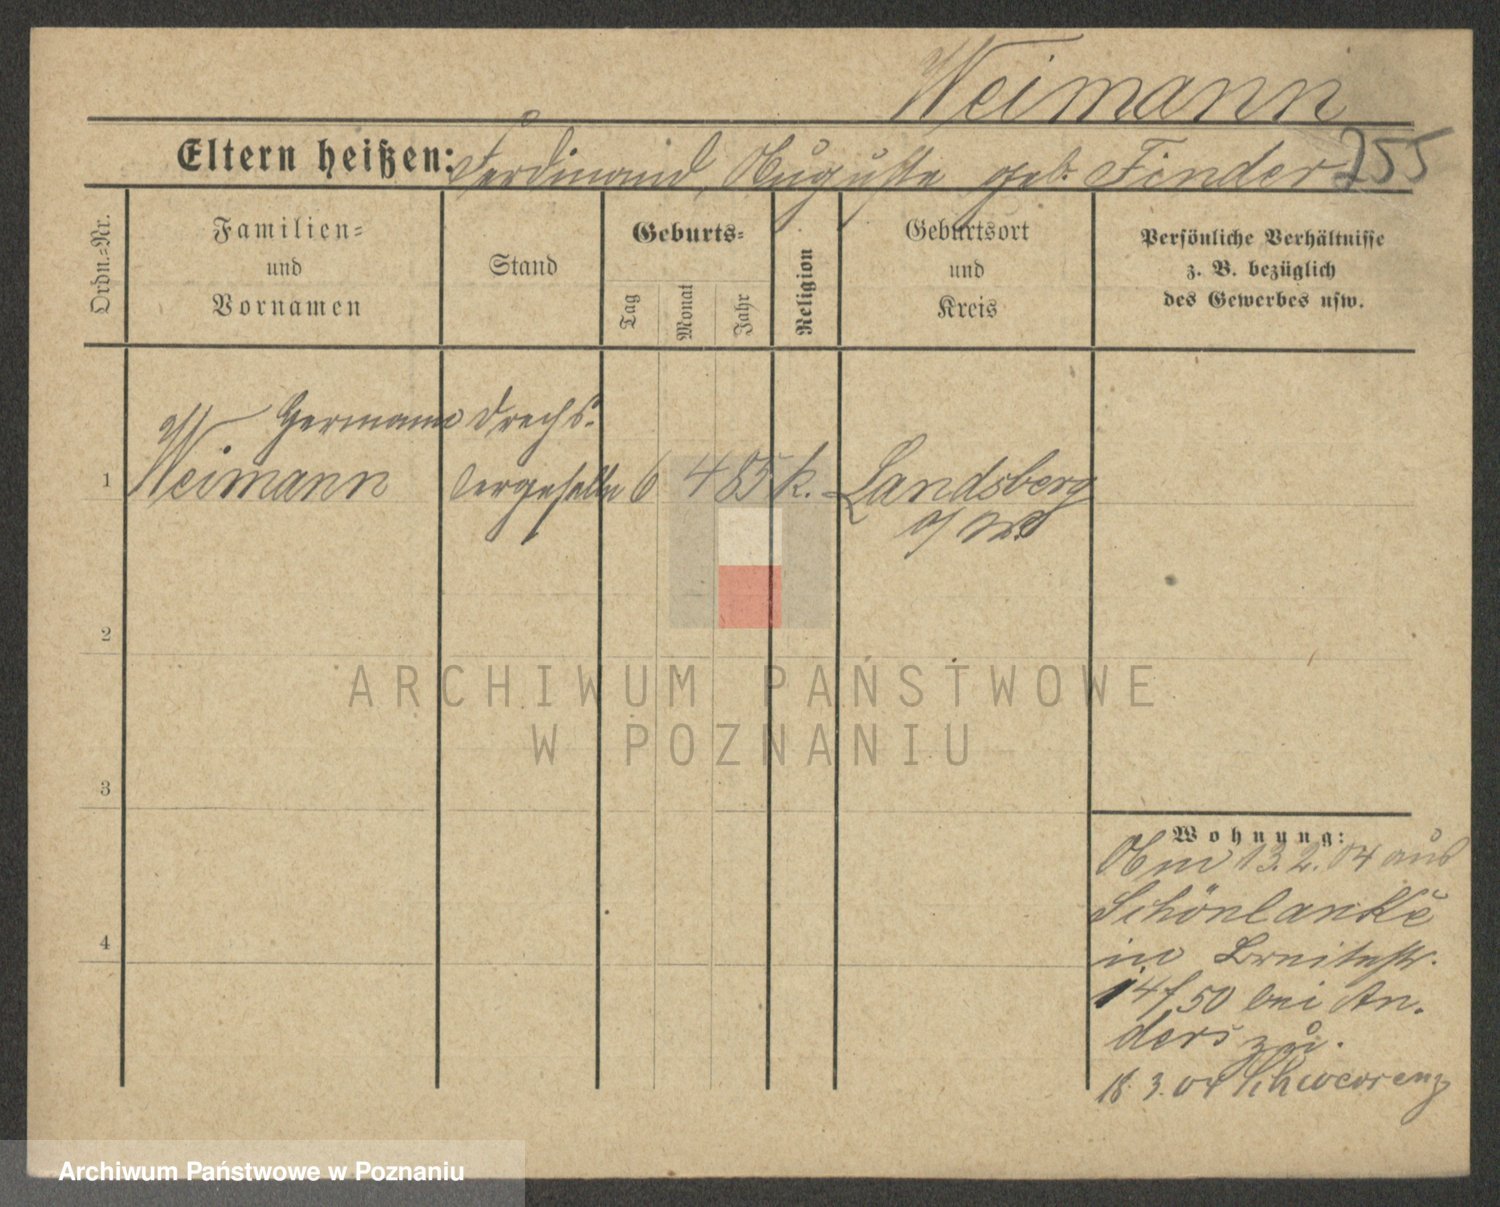 Weimann
Eltern heißen: Ferdinand, Auguste geb. Finder 255
Ordn.=Nr.
Familien=
und
Vornamen
Stand
Geburts=
Tag
Monat
Jahr
Religion
Geburtsort
und
Kreis
Persönliche Verhältnisse
z. B. bezüglich
des Gewerbes usw.
Hermann Drechs-
1 Weimann lergeselle 6 4 85 k. Landsberg
a/W.
2
ARCHIWUM PAŃSTWOWE
W POZNANIU
3
Wohnung:
Am 13.2.04 aus
Schönlanke
in Breitestr.
14/50 bei An-
ders zu.
18.3.04
4
Archiwum Państwowe w Poznaniu